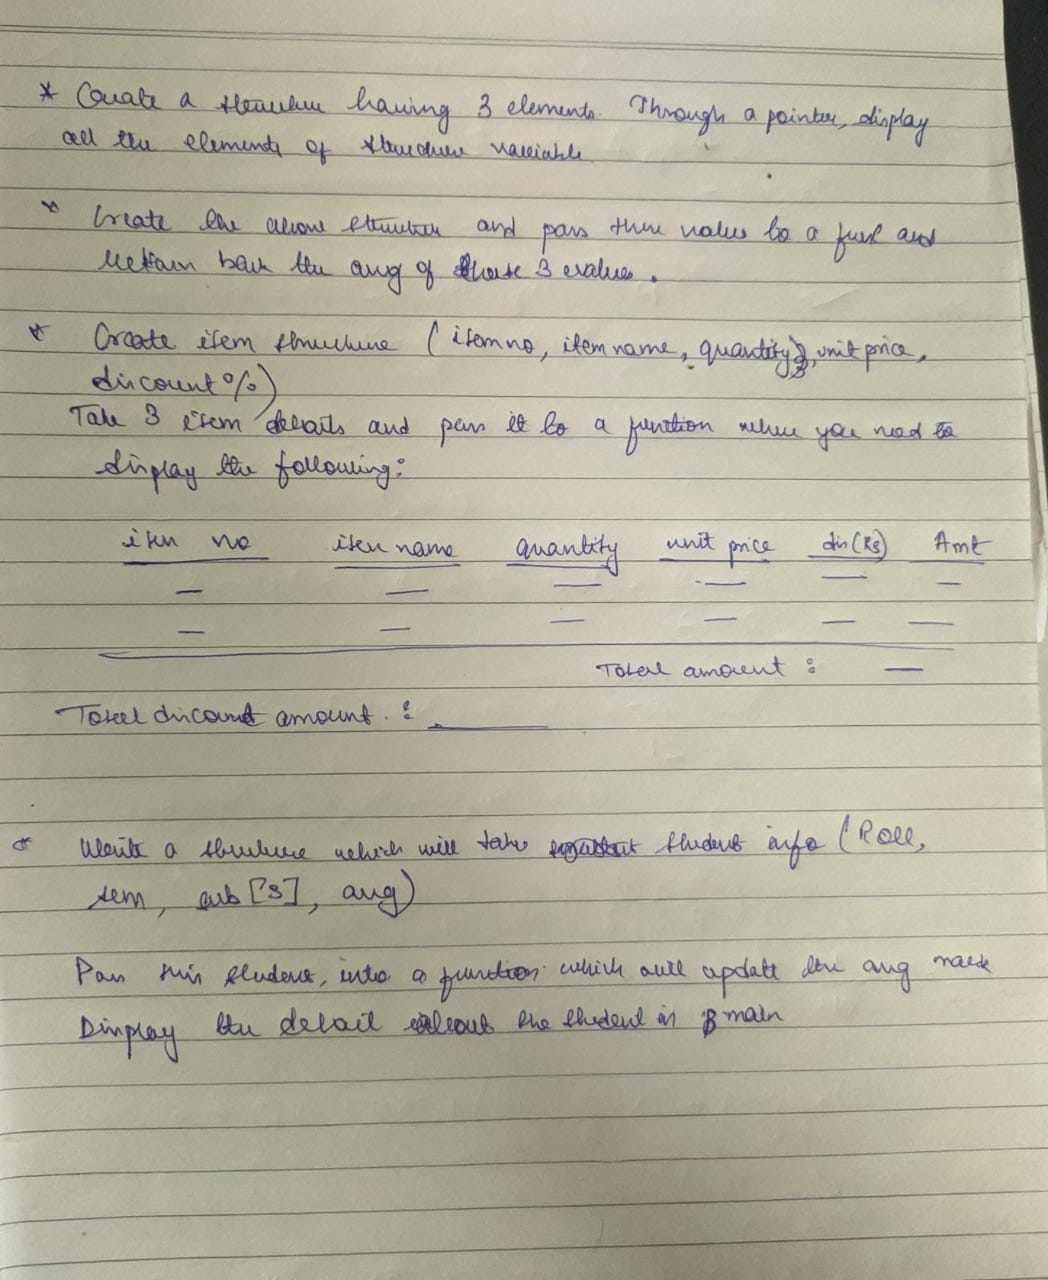 * Create a structure having 3 elements. Through a pointer, display
all the elements of structure variable
* Create the above structure and pass three values to a func and
return back the avg of those 3 values.
* Create item structure (item no, item name, quantity, unit price,
discount %)
Take 3 item details and pass it to a function where you need to
display the following:
item no item name quantity unit price dis(Rs) Amt
Total amount :
Total discount amount. :
* Write a structure which will take student info (Roll,
sem, sub[3], avg)
Pass this student, into a function which will update the avg mark
Display the detail about the student in main